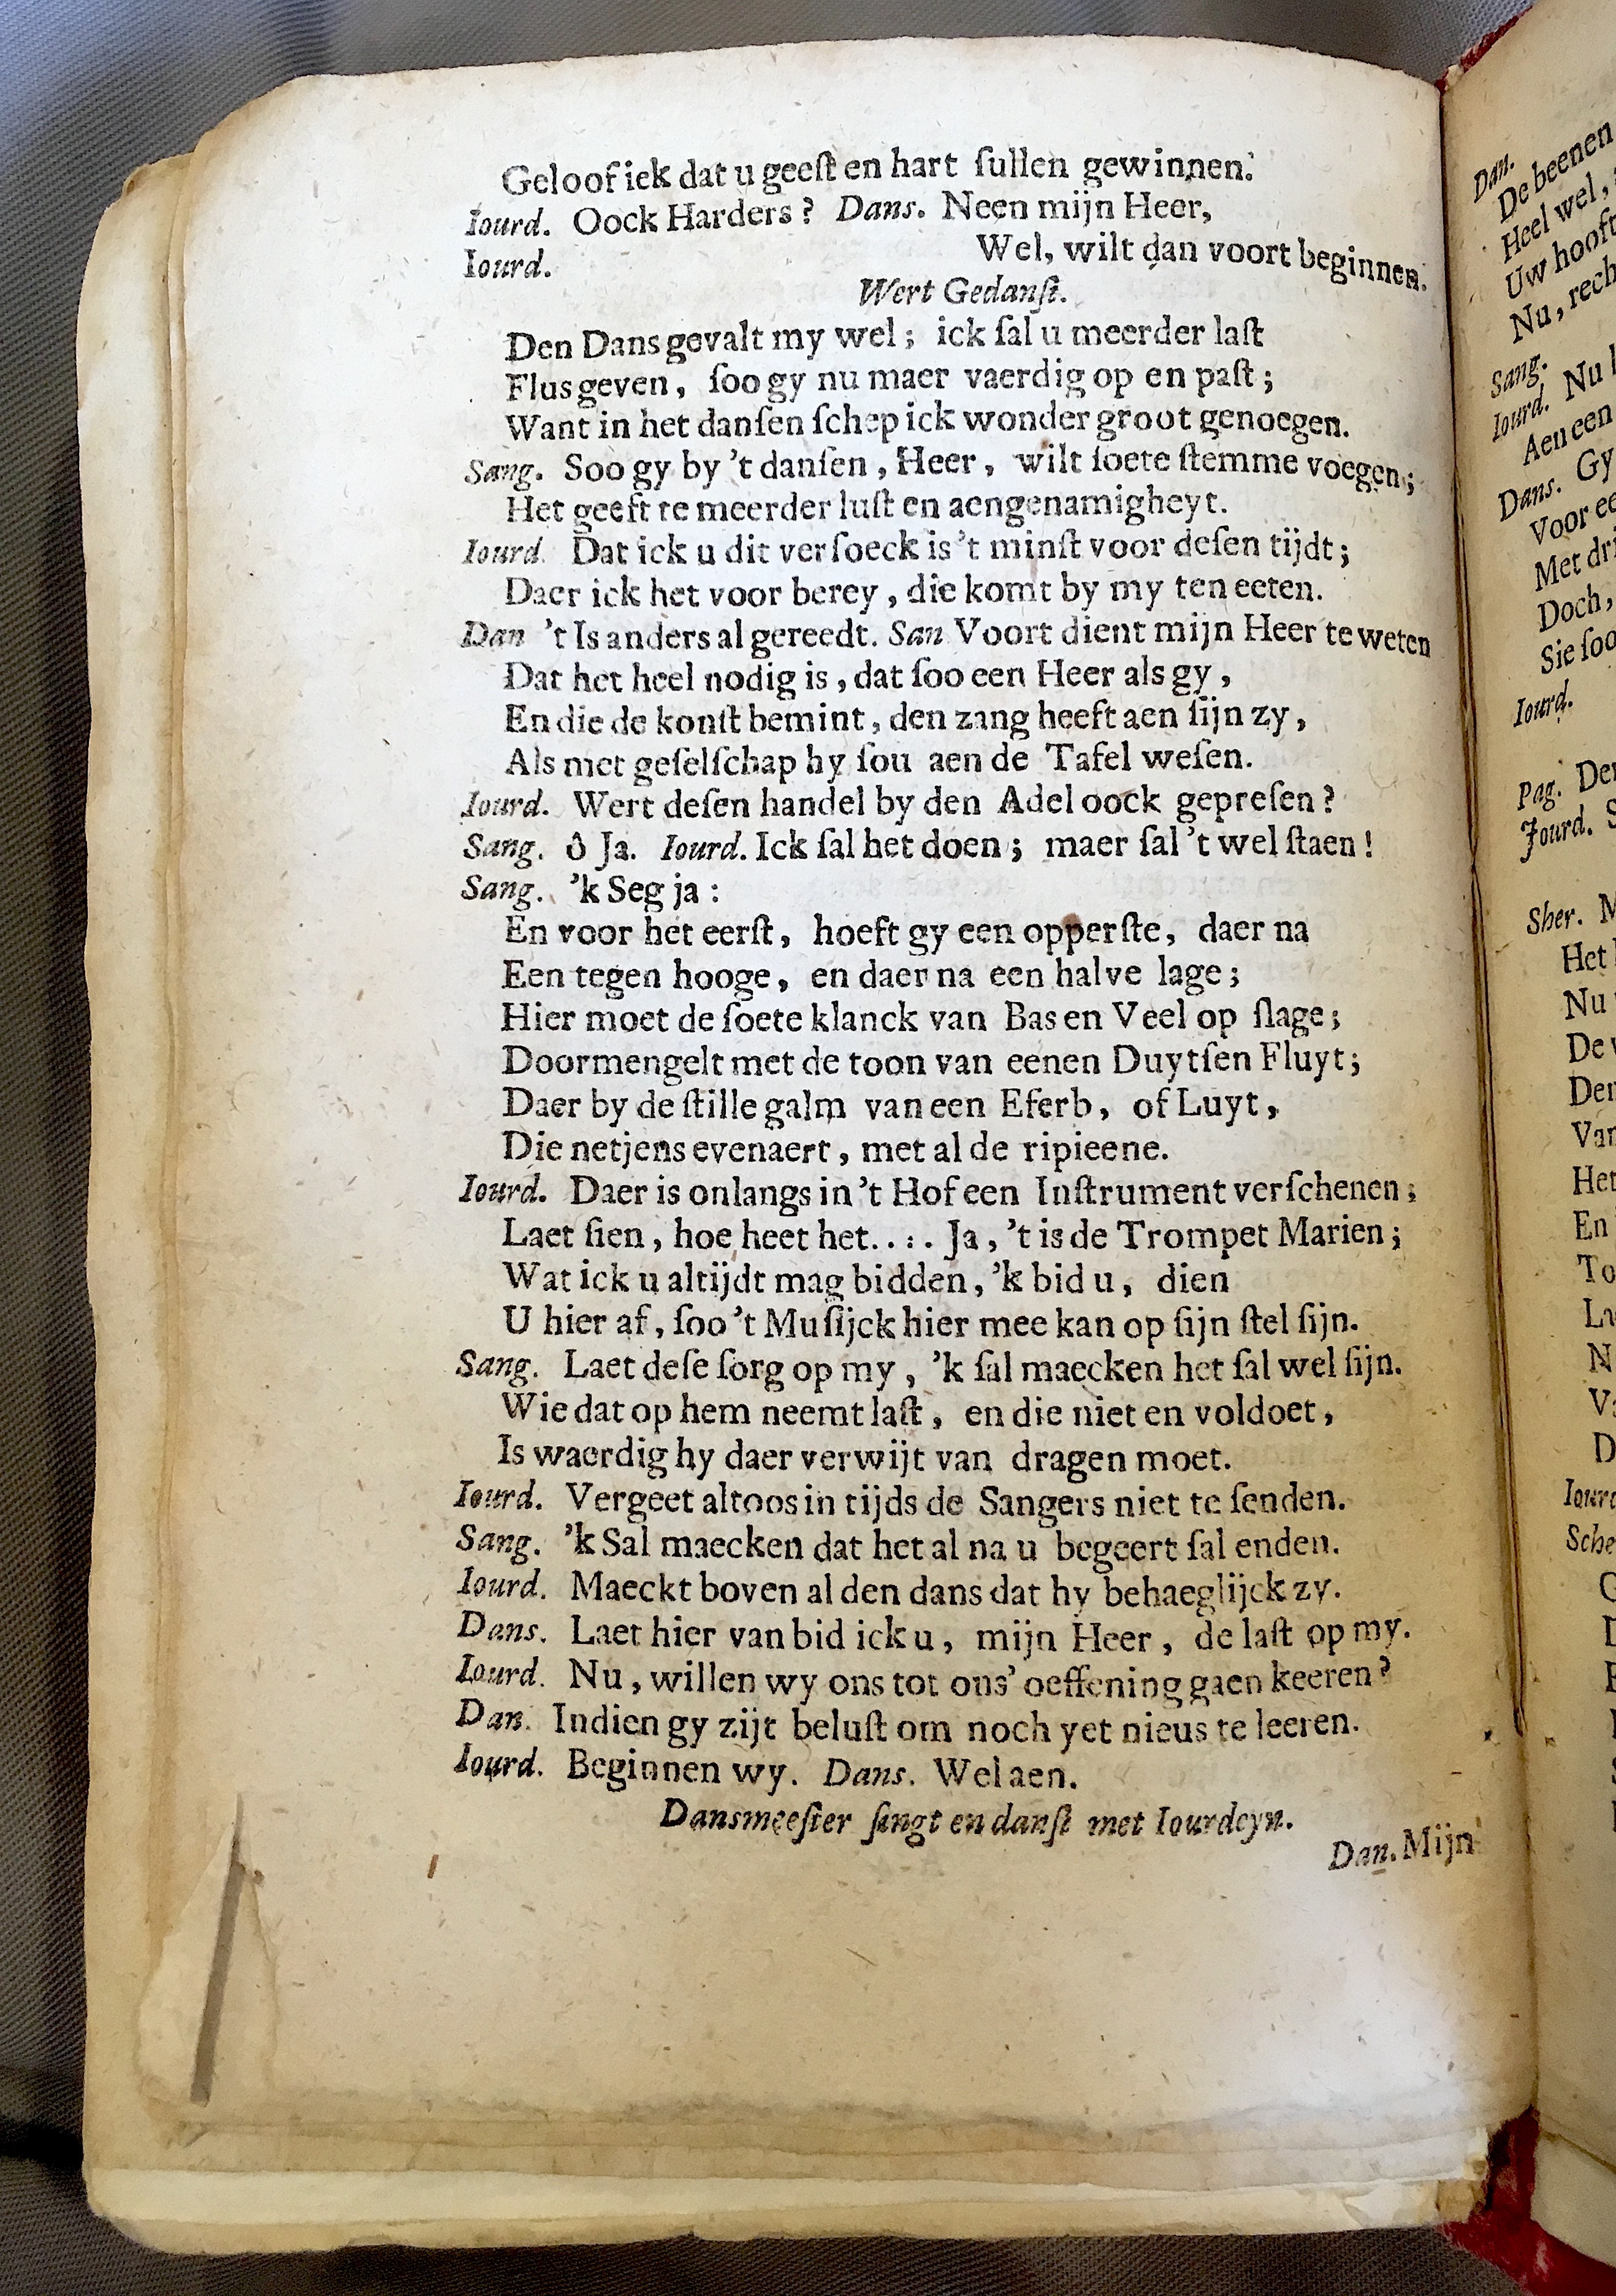 Geloof iek dat u geeſt en hart ſullen gewinnen.
Iourd. Oock Harders? Dans. Neen mijn Heer,
Iourd. Wel, wilt dan voort beginnen.
Wert Gedanſt.
Den Dans gevalt my wel; ick ſal u meerder laſt
Flus geven, ſoo gy nu maer vaerdig op en paſt;
Want in het danſen ſchep ick wonder groot genoegen.
Sang. Soo gy by 't danſen, Heer, wilt ſoete ſtemme voegen;
Het geeft te meerder luſt en aengenamigheyt.
Iourd. Dat ick u dit verſoeck is 't minſt voor deſen tijdt;
Daer ick het voor berey, die komt by my ten eeten.
Dan 't Is anders al gereedt. San Voort dient mijn Heer te weten
Dat het heel nodig is, dat ſoo een Heer als gy,
En die de konſt bemint, den zang heeft aen ſijn zy,
Als met geſelſchap hy ſou aen de Tafel weſen.
Iourd. Wert deſen handel by den Adel oock gepreſen?
Sang. ô Ja. Iourd. Ick ſal het doen; maer ſal 't wel ſtaen!
Sang. 'k Seg ja:
En voor het eerſt, hoeft gy een opperſte, daer na
Een tegen hooge, en daer na een halve lage;
Hier moet de ſoete klanck van Bas en Veel op ſlage;
Doormengelt met de toon van eenen Duytſen Fluyt;
Daer by de ſtille galm van een Eferb, of Luyt,
Die netjens evenaert, met al de ripieene.
Iourd. Daer is onlangs in 't Hof een Inſtrument verſchenen;
Laet ſien, hoe heet het.... Ja, 't is de Trompet Marien;
Wat ick u altijdt mag bidden, 'k bid u, dien
U hier af, ſoo 't Muſijck hier mee kan op ſijn ſtel ſijn.
Sang. Laet deſe ſorg op my, 'k ſal maecken het ſal wel ſijn.
Wie dat op hem neemt laſt, en die niet en voldoet,
Is waerdig hy daer verwijt van dragen moet.
Iourd. Vergeet altoos in tijds de Sangers niet te ſenden.
Sang. 'k Sal maecken dat het al na u begeert ſal enden.
Iourd. Maeckt boven al den dans dat hy behaeglijck zy.
Dans. Laet hier van bid ick u, mijn Heer, de laſt op my.
Iourd. Nu, willen wy ons tot ons' oeffening gaen keeren?
Dan. Indien gy zijt beluſt om noch yet nieus te leeren.
Iourd. Beginnen wy. Dans. Wel aen.
Dansmeeſter ſingt en danſt met Iourdeyn.
Dan. Mijn
Dan.
De beenen
Heel wel,
Uw hooft
Nu, rech
Sang.
Iourd. Nu
Aen een
Dans. Gy
Voor ee
Met dri
Doch,
Sie ſoo
Iourd.
Pag. Den
Jourd. S
Sher. M
Het
Nu
De
Den
Van
Het
En
To
La
N
Va
D
Iourd
Sche